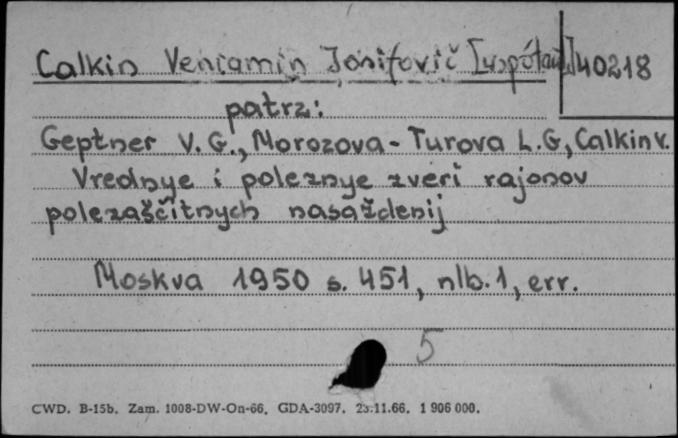 Calkin Veniamin Iosifovič [współaut.] 40218
patrz:
Geptner V. G., Morozova-Turova L. G., Calkin V.
Vrednye i poleznye zveri rajonov
polezaščitnych nasaždenij
Moskva 1950 s. 451, nlb. 1, err.
5
CWD. B-15b. Zam. 1008-DW-On-66. GDA-3097. 23.11.66. 1 906 000.